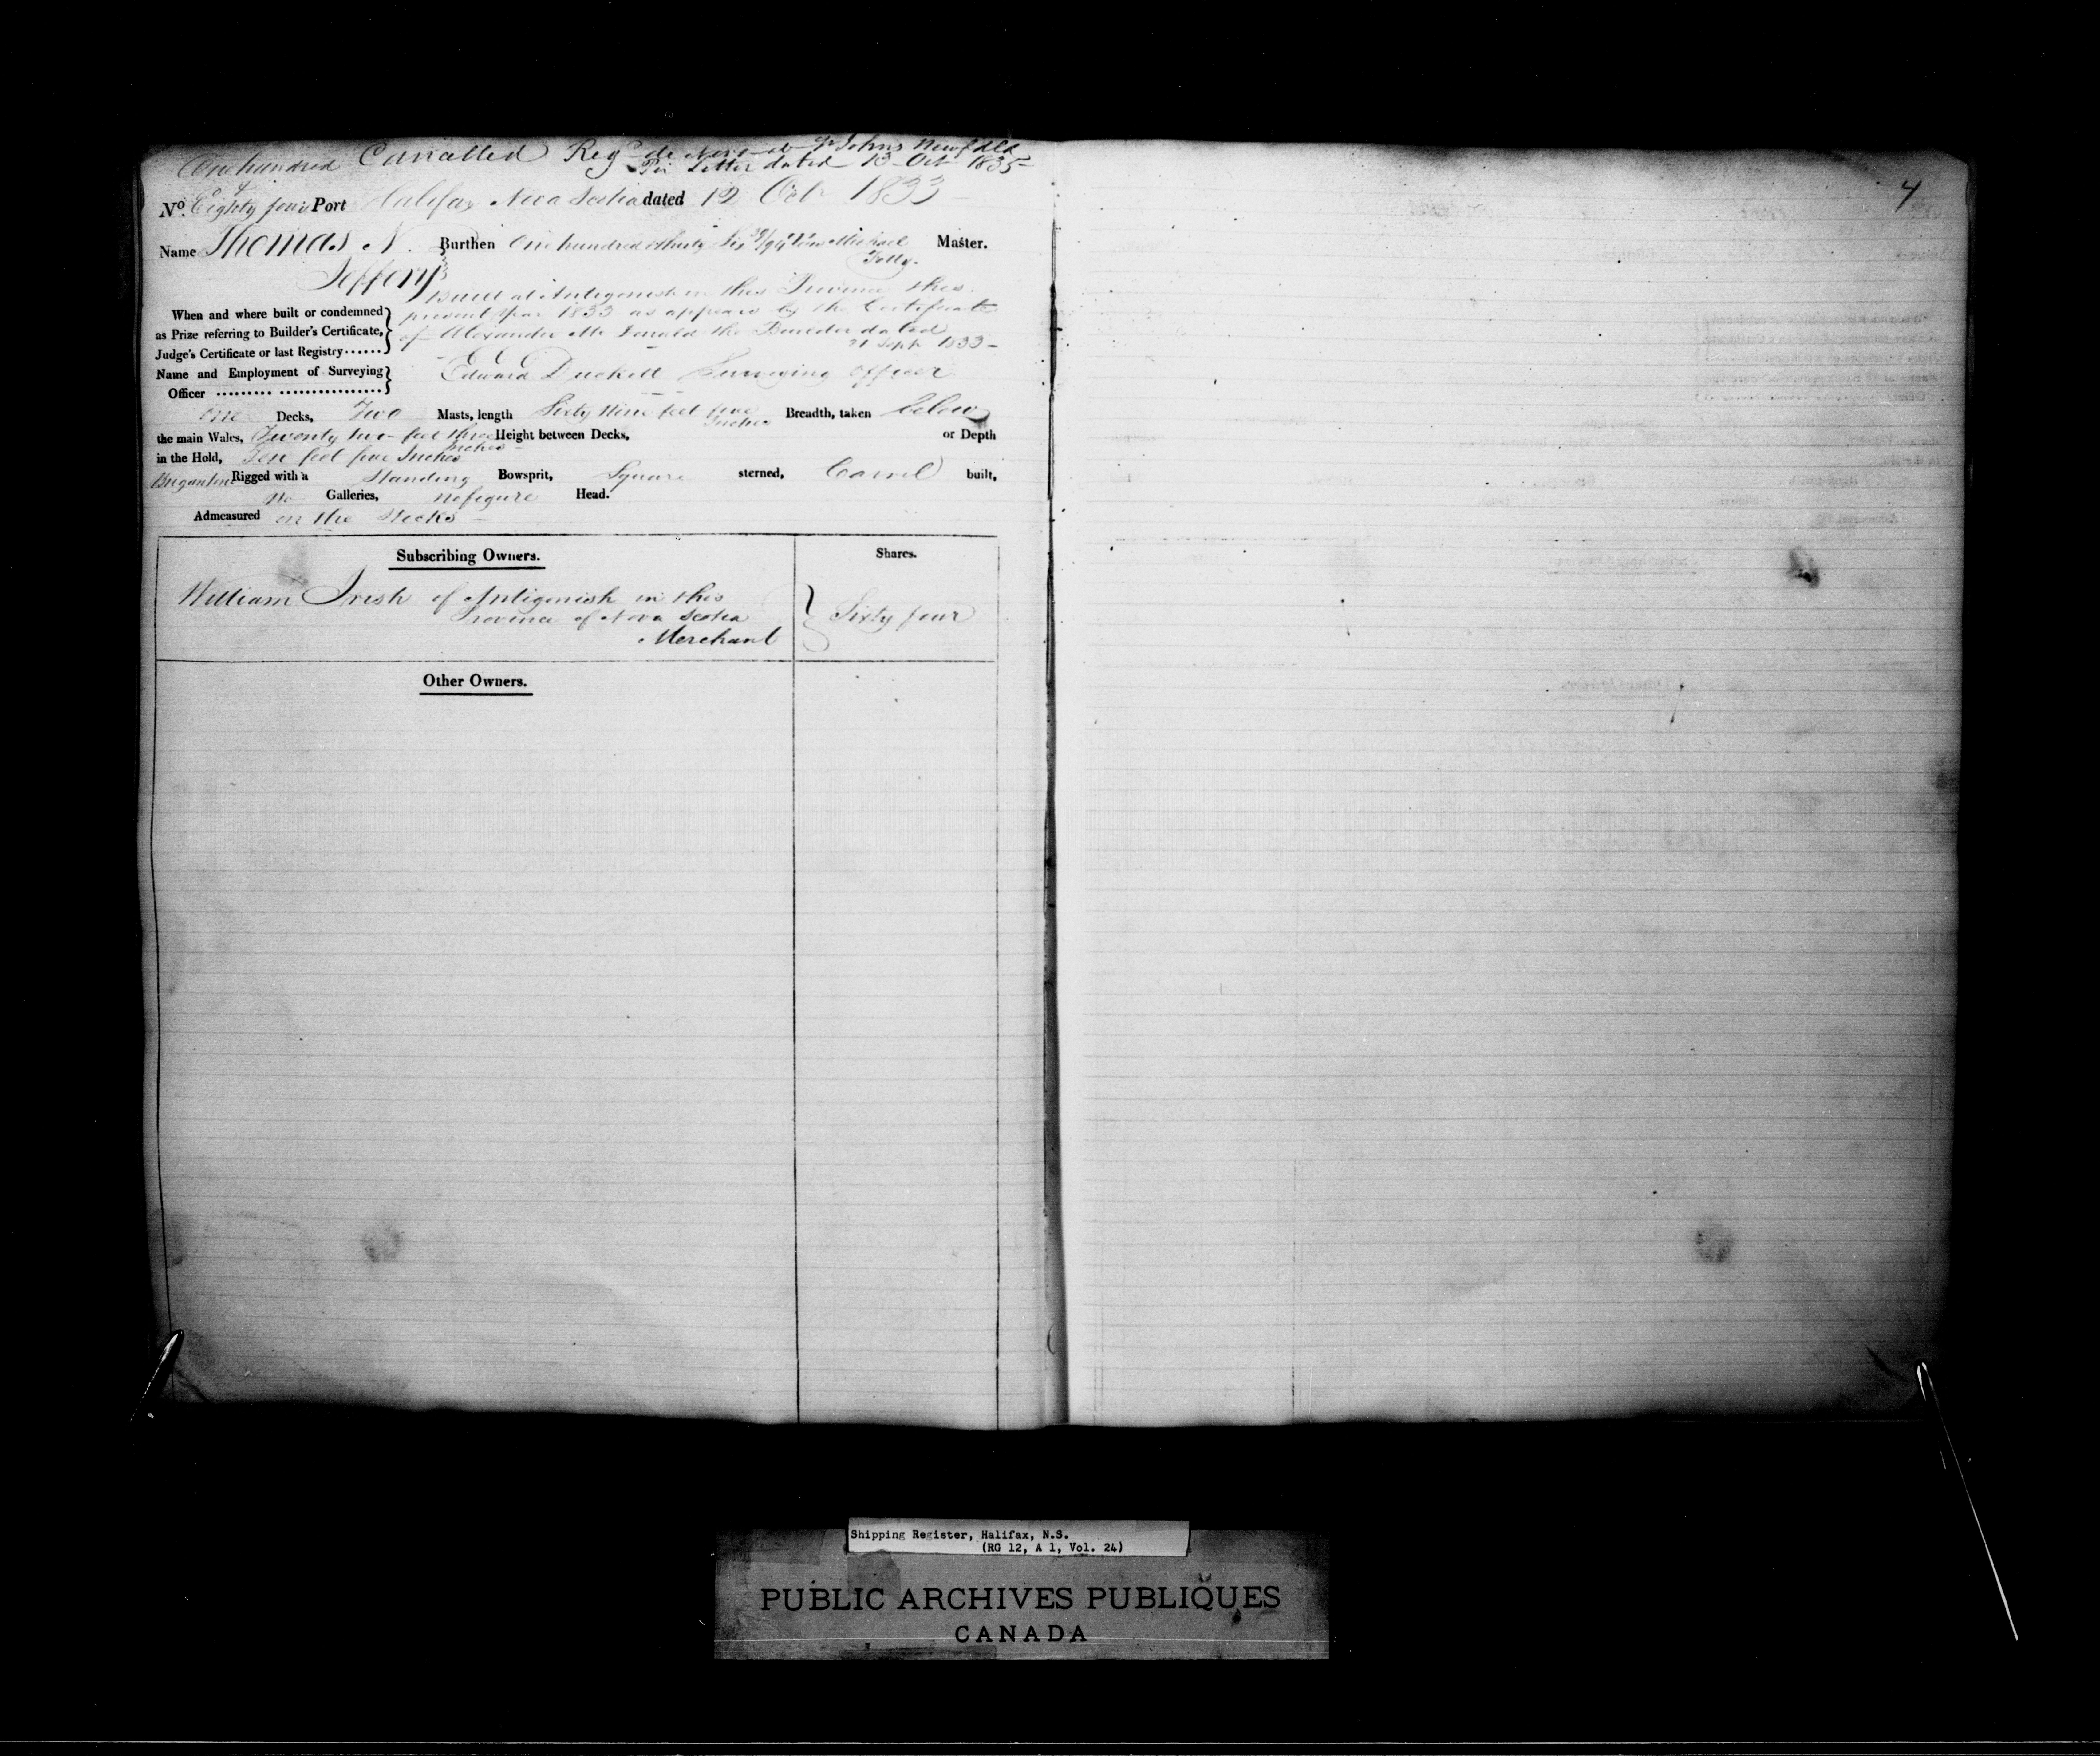 One hundred Cancelled Regd de Novo at St Johns Newfdld
Per Letter dated 13 Oct 1835
4
No. Eighty four Port Halifax Nova Scotia dated 12 Oct 1833
Name Thomas N. Burthen One hundred & thirty Six Tons Michael Master.
Jeffery
Built at Antigonish in this Province this
When and where built or condemned present year 1833 as appears by the Certificate
as Prize referring to Builder's Certificate, of Alexander McDonald the Builder dated
Judge's Certificate or last Registry 21 Sept 1833
Name and Employment of Surveying Edward Duckett Surveying Officer
Officer
One Decks, Two Masts, length Sixty Nine feet five Inches Breadth, taken below
the main Wales, Twenty two feet three Inches Height between Decks, or Depth
in the Hold, Ten feet five Inches
Brigantine Rigged with a Standing Bowsprit, Square sterned, Carvel built,
No Galleries, no figure Head.
Admeasured on the Stocks
Subscribing Owners. Shares.
William Irish of Antigonish in this
Province of Nova Scotia Sixty four
Merchant
Other Owners.
Shipping Register, Halifax, N.S.
(RG 12, A 1, Vol. 24)
PUBLIC ARCHIVES PUBLIQUES
CANADA